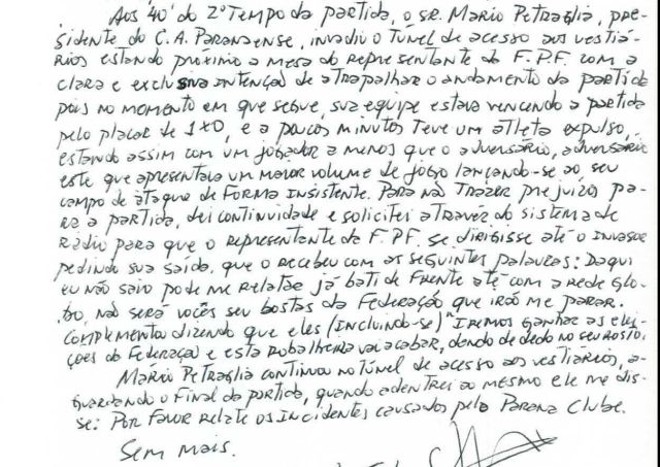 Aos '40' do 2º Tempo da partida, o sr. Mario Petraglia, pre-
sidente do C.A. Paranaense, invadiu o túnel de acesso aos vestiá-
rios estando próximo a mesa do representante da F.P.F. com a
clara e exclusiva intenção de atrapalhar o andamento da partida
pois no momento em que segue, sua equipe estava vencendo a partida
pelo placar de 1x0, e a poucos minutos teve um atleta expulso,
estando assim com um jogador a menos que o adversário, adversário
este que apresentava um maior volume de jogo lançando-se ao, seu
campo de ataque de forma insistente. Para não trazer prejuizos pa-
ra a partida, dei continuidade e solicitei através do sistema de
rádio para que o representante da F.P.F. se dirigisse até o invasor
pedindo sua saída, que o recebeu com as seguintes palavras: Daqui
eu não saio pode me relatar já bati de frente até com a rede Glo-
bo, não será vocês seu bostas da Federação que irão me parar.
Complementou dizendo que eles (incluindo-se) "iremos ganhar as elei-
ções da Federação e esta robalheira vai acabar, dando de dedo no seu rosto.
Mário Petraglia continuou no túnel de acesso aos vestiários, a-
guardando o final da partida, quando adentrei ao mesmo ele me dis-
se: Por favor relate os incidentes causados pelo Parana Clube.
Sem mais.